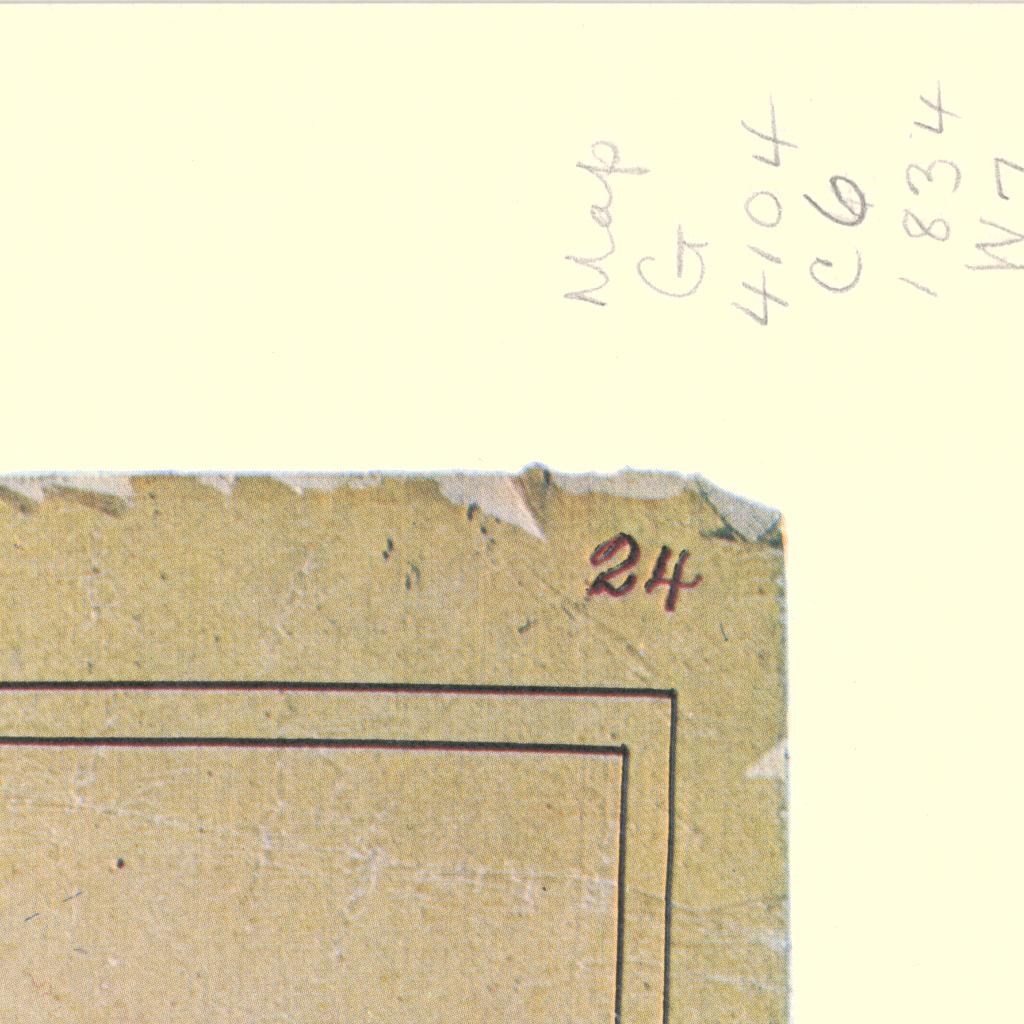 Map
G
4104
C6
1834
W7
24